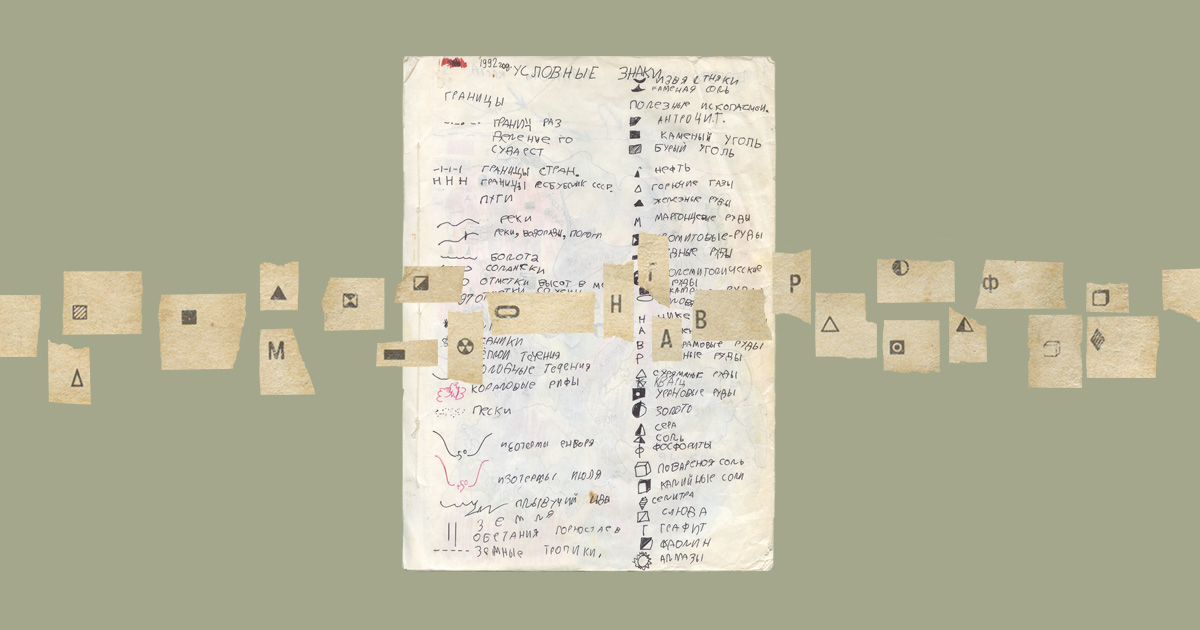 1992 год
УСЛОВНЫЕ ЗНАКИ
ГРАНИЦЫ
ГРАНИЦ РАЗ
ДЕЛЕНИЕ ГО
СУДАРСТ
ГРАНИЦЫ СТРАН.
ГРАНИЦЫ РЕСБУБЛИК СССР.
ПУТИ
РЕКИ
РЕКИ, ВОДОПАДЫ, ПОРОГИ
БОЛОТА
СОЛАНЧКИ
ОТМЕТКИ ВЫСОТ В М
ТЕЧЕНИЯ
ХОЛОДНЫЕ ТЕЧЕНИЯ
КОРАЛОВЫЕ РИФЫ
ПЕСКИ
ИЗОТЕРМЫ ЯНВОРЯ
ИЗОТЕРМЫ ИЮЛЯ
ПЛЫВУЧИЙ
ЗЕМЛЯ
ОБЕТАНИЯ ГОРНОСТАЕВ
ЗЕМНЫЕ ТРОПИКИ.
ИЗВЯСТНЯКИ
КАМЕНАЯ СОЛЬ
ПОЛЕЗНЫЕ ИСКОПАЕМЫИ.
АНТРОЦИТ.
КАМЕНЫЙ УГОЛЬ
БУРЫЙ УГОЛЬ
НЕФТЬ
ГОРЮЧИЕ ГАЗЫ
ЖЕЛЕЗНЫЕ РУДЫ
М МАРГОНЦЕВЫЕ РУДЫ
РОМИТОВЫЕ-РУДЫ
ДНЫЕ РУДЫ
РУДЫ
Н
А
В РАМОВЫЕ РУДЫ
Р НЫЕ РУДЫ
СУРЯМНЫЕ РУДЫ
КВАРЦ
УРАНОВЫЕ РУДЫ
ЗОЛОТО
СЕРА
СОЛЬ
Ф ФОСФОРИТЫ
ПОВАРЕНАЯ СОЛЬ
КАЛИЙНЫЕ СОЛИ
СЕЛИТРА
СЛЮДА
Г ГРАФИТ
КАОЛИН
АЛМАЗЫ
М
Н
А
В
Р
Ф